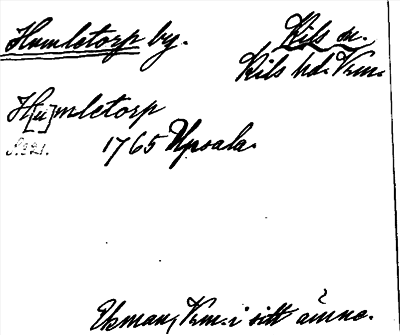 Humletorp by. Kils sn.
Kils hd. Vrm.
H[u]mletorp
S. 221. 1765 Upsala.
Ekman, Vrm. i sitt ämne.